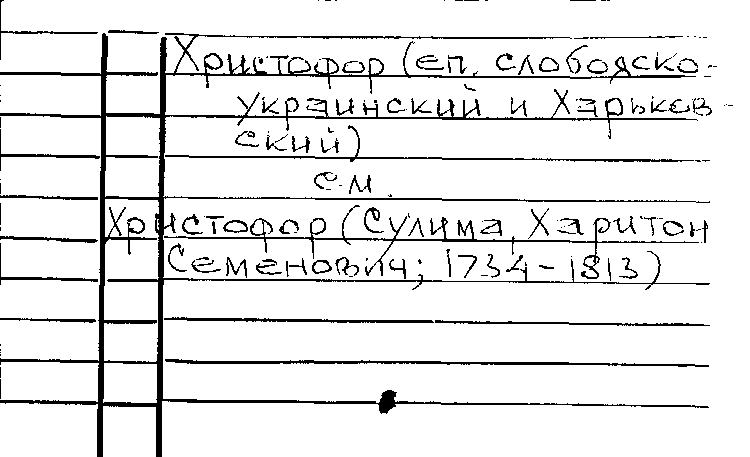 Христофор (еп. слободско-
украинский и Харьков-
ский)
см.
Христофор (Сулима, Харитон
Семенович; 1734-1813)